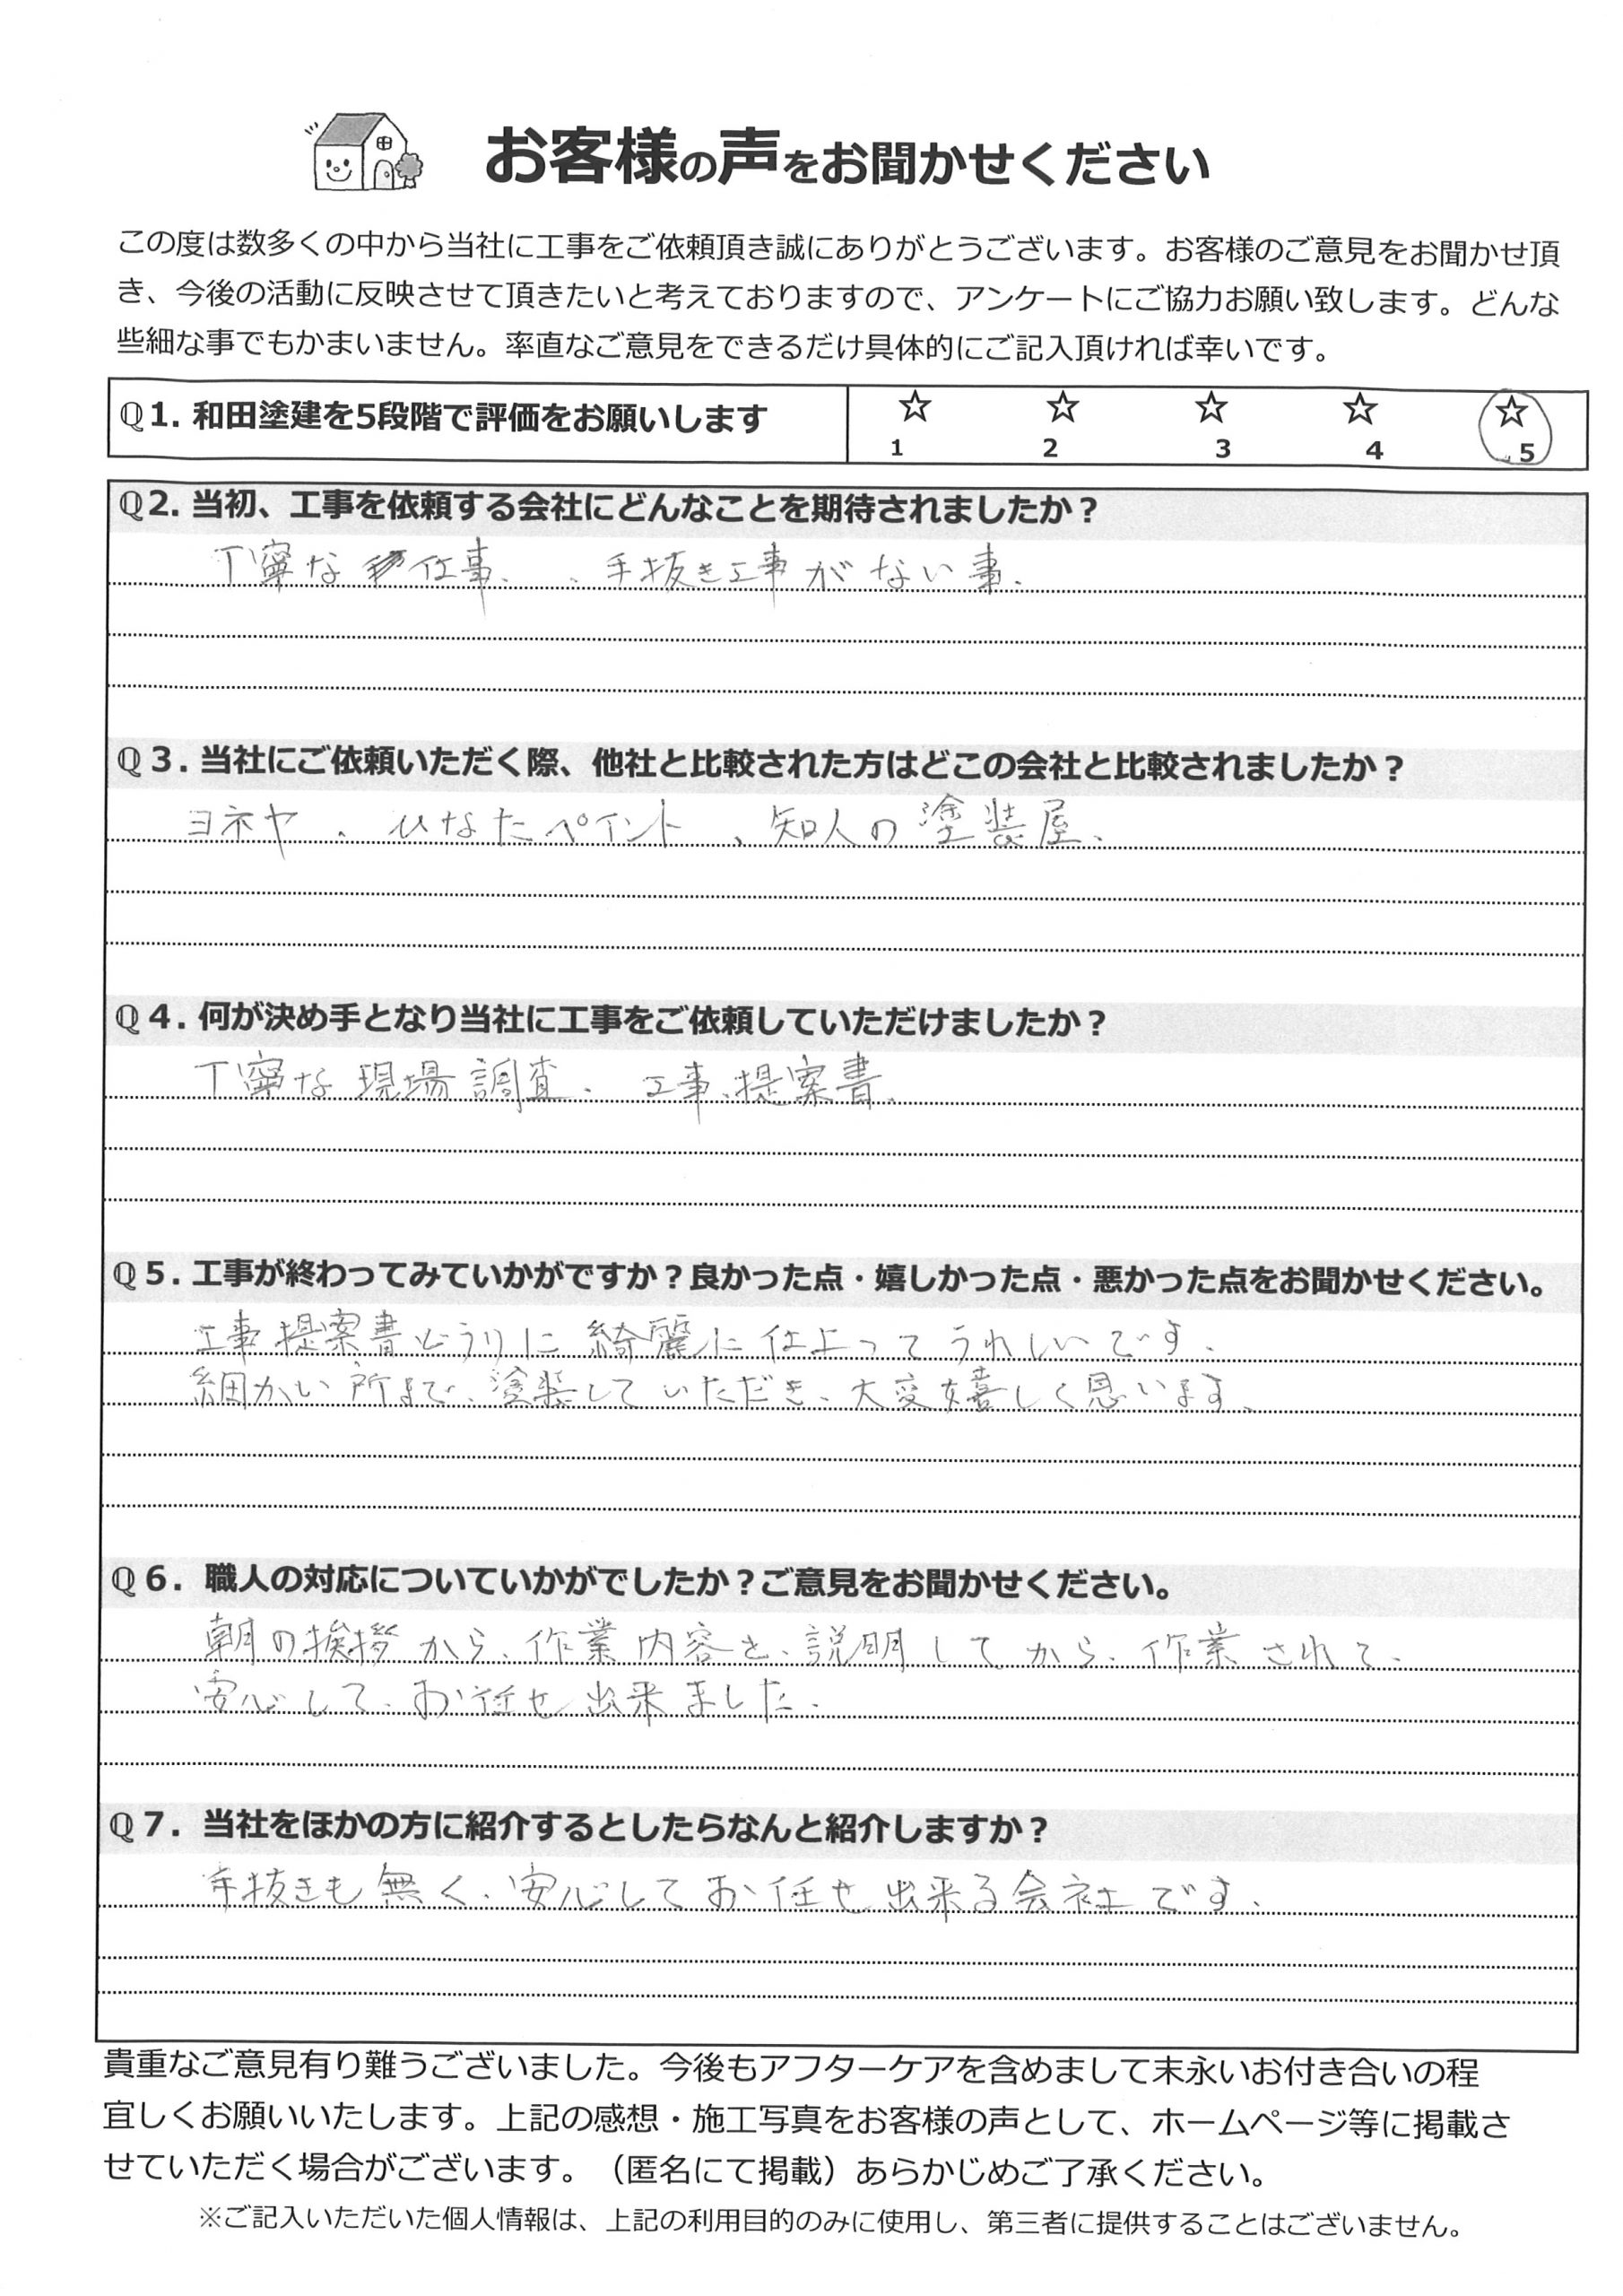 お客様の声をお聞かせください
この度は数多くの中から当社に工事をご依頼頂き誠にありがとうございます。お客様のご意見をお聞かせ頂
き、今後の活動に反映させて頂きたいと考えておりますので、アンケートにご協力お願い致します。どんな
些細な事でもかまいません。率直なご意見をできるだけ具体的にご記入頂ければ幸いです。
Q1. 和田塗建を5段階で評価をお願いします ☆ ☆ ☆ ☆ ☆
1 2 3 4 5
Q2. 当初、工事を依頼する会社にどんなことを期待されましたか？
丁寧な仕事、、手抜き工事がない事、
Q３. 当社にご依頼いただく際、他社と比較された方はどこの会社と比較されましたか？
ヨネヤ、ひなたペイント、知人の塗装屋、
Q４. 何が決め手となり当社に工事をご依頼していただけましたか？
丁寧な現場調査、工事、提案書、
Q５. 工事が終わってみていかがですか？良かった点・嬉しかった点・悪かった点をお聞かせください。
工事提案書どうりに綺麗に仕上ってうれしいです、
細かい所まで、塗装していただき、大変嬉しく思います、
Q６. 職人の対応についていかがでしたか？ご意見をお聞かせください。
朝の挨拶から、作業内容を、説明してから、作業されて、
安心して、お任せ出来ました、
Q７. 当社をほかの方に紹介するとしたらなんと紹介しますか？
手抜きも無く、安心してお任せ出来る会社です、
貴重なご意見有り難うございました。今後もアフターケアを含めまして末永いお付き合いの程
宜しくお願いいたします。上記の感想・施工写真をお客様の声として、ホームページ等に掲載さ
せていただく場合がございます。（匿名にて掲載）あらかじめご了承ください。
※ご記入いただいた個人情報は、上記の利用目的のみに使用し、第三者に提供することはございません。